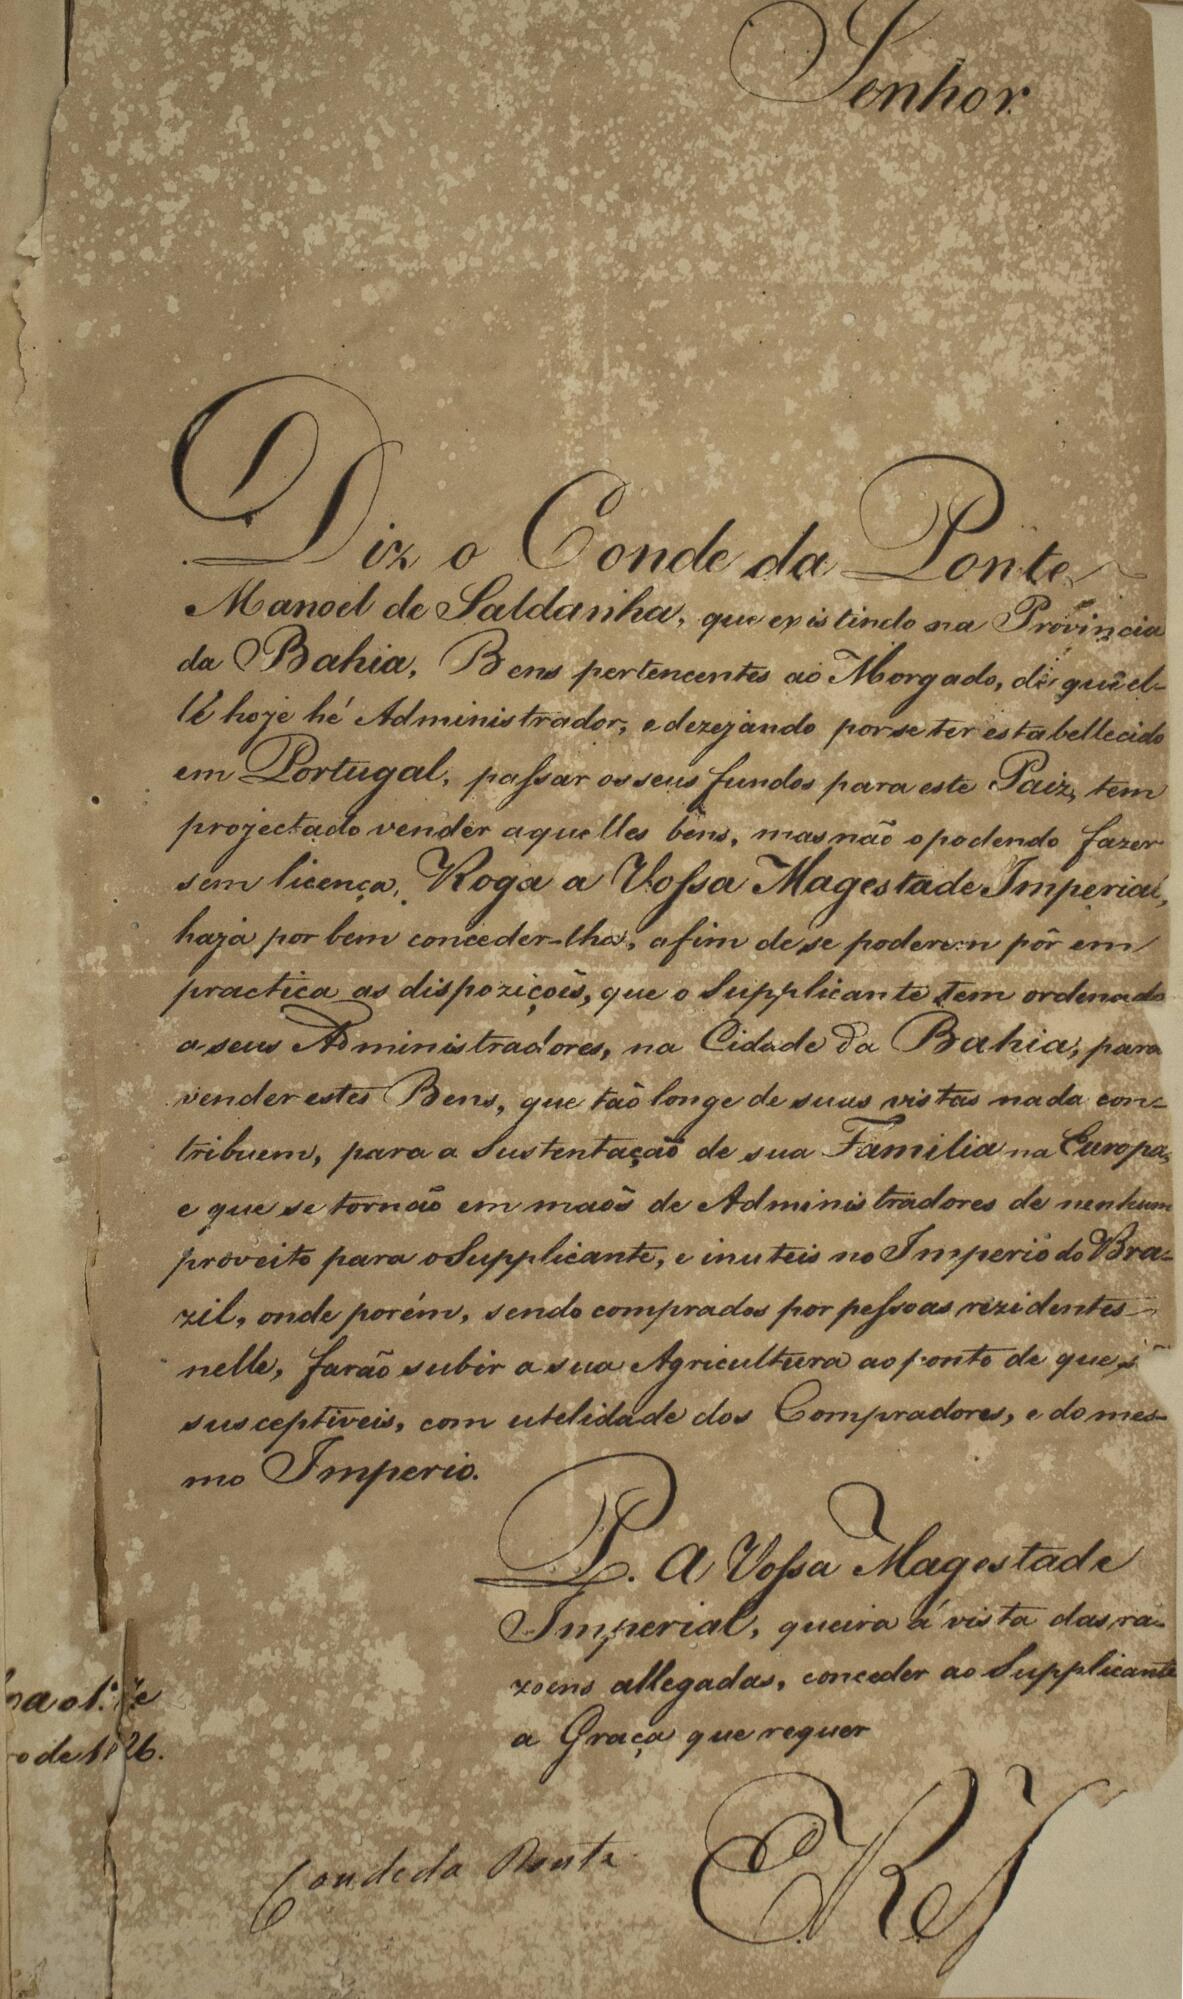 Senhor.
Diz o Conde da Ponte
Manoel de Saldanha, que existindo na Provincia
da Bahia, Bens pertencentes ao Morgado, de que el-
lé hoje hé Administrador, e dezejando por se ter estabellecido
em Portugal, passar os seus fundos para este Paiz, tem
projectado vender aquelles bens, mas não o podendo fazer
sem licença, Roga a Vossa Magestade Imperial,
haja por bem conceder-lha, afim de se poderem pôr em
practica as dispozições, que o Supplicante tem ordenado
a seus Administradores, na Cidade da Bahia, para
vender estes Bens, que tão longe de suas vistas nada con-
tribuem, para a Sustentação de sua Familia na Europa,
e que se tornão em maõs de Administradores de nenhum
proveito para o Supplicante, e inuteis no Imperio do Bra-
zil, onde porém, sendo comprados por pessoas rezidentes
nelle, farão subir a sua Agricultura ao ponto de que
susceptiveis, com utelidade dos Compradores, e do mes-
mo Imperio.
P. A Vossa Magestade
Imperial, queira á vista das ra-
zoens allegadas, conceder ao Supplicante
a Graça que requer
o de 1826.
Conde da Ponte